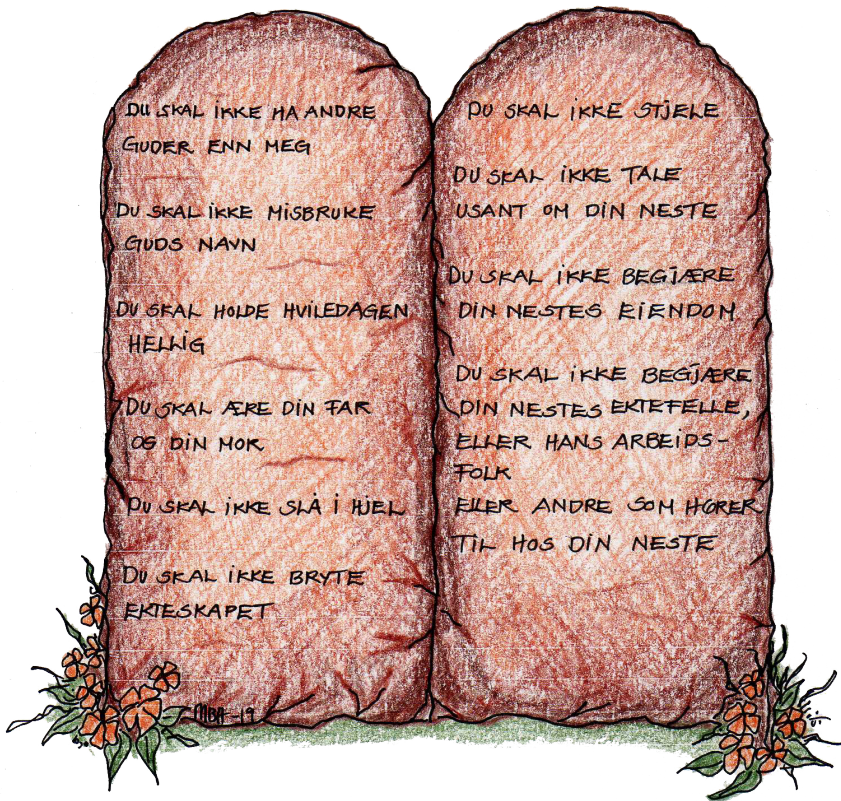 DU SKAL IKKE HA ANDRE
GUDER ENN MEG
DU SKAL IKKE MISBRUKE
GUDS NAVN
DU SKAL HOLDE HVILEDAGEN
HELLIG
DU SKAL ÆRE DIN FAR
OG DIN MOR
DU SKAL IKKE SLÅ I HJEL
DU SKAL IKKE BRYTE
EKTESKAPET
MBA -19
DU SKAL IKKE STJELE
DU SKAL IKKE TALE
USANT OM DIN NESTE
DU SKAL IKKE BEGJÆRE
DIN NESTES EIENDOM
DU SKAL IKKE BEGJÆRE
DIN NESTES EKTEFELLE,
ELLER HANS ARBEIDS-
FOLK
ELLER ANDRE SOM HØRER
TIL HOS DIN NESTE